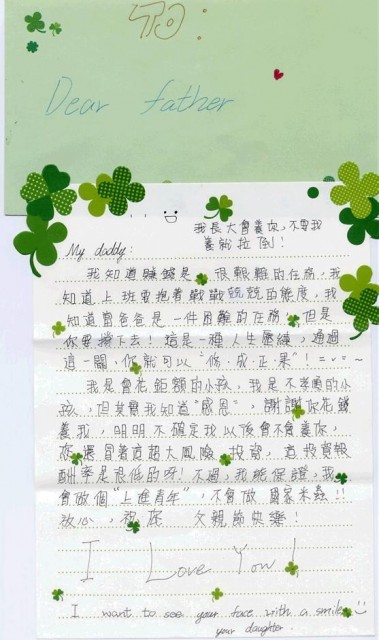 To:
Dear father
我長大會養你,不要我
養就拉倒!
My daddy:
我知道賺錢是 很艱難的任務,我
知道上班要抱著戰戰兢兢的態度,我
知道當爸爸是一件困難的任務,但是
你要撐下去!這是一種人生歷練,通過
這一關,你就可以"修成正果"!
我是會花鉅額的小孩,我是不孝順的小
孩,但其實我知道"感恩",謝謝你花錢
養我,明明不確定我以後會不會養你,
你還冒著這超大風險 投資,這投資報
酬率是很低的呀!不過,我能保證,我
會做個"上進青年",不會做 國家米蟲!!
放心,祝 你 父親節快樂!
I Love You!
I want to see your face with a smile
your daughter.